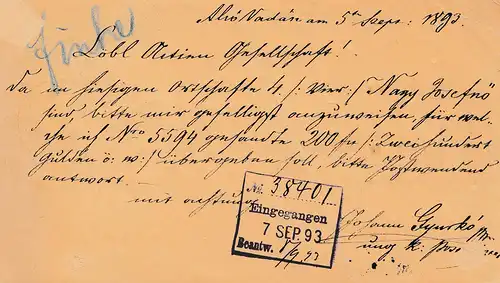 Alsó Vadász am 5ten Sept: 1893.
Löbl Actien Gesellschaft!
Da im hiesigen Ortschafte 4. /: Vier :/ Nagy Josefnö
sind, bitte mir gefälligst anzuweisen, für wel-
che ich Nro 5594 gesandte 200 fn /: Zweihundert
Gulden ö: w: :/ übergeben soll, bitte Postwendend
antwort.
mit achtung
Johann Gynskó
ung k:
No. 38401.
Eingegangen
7 SEP. 93
Beantw. 7/9 93